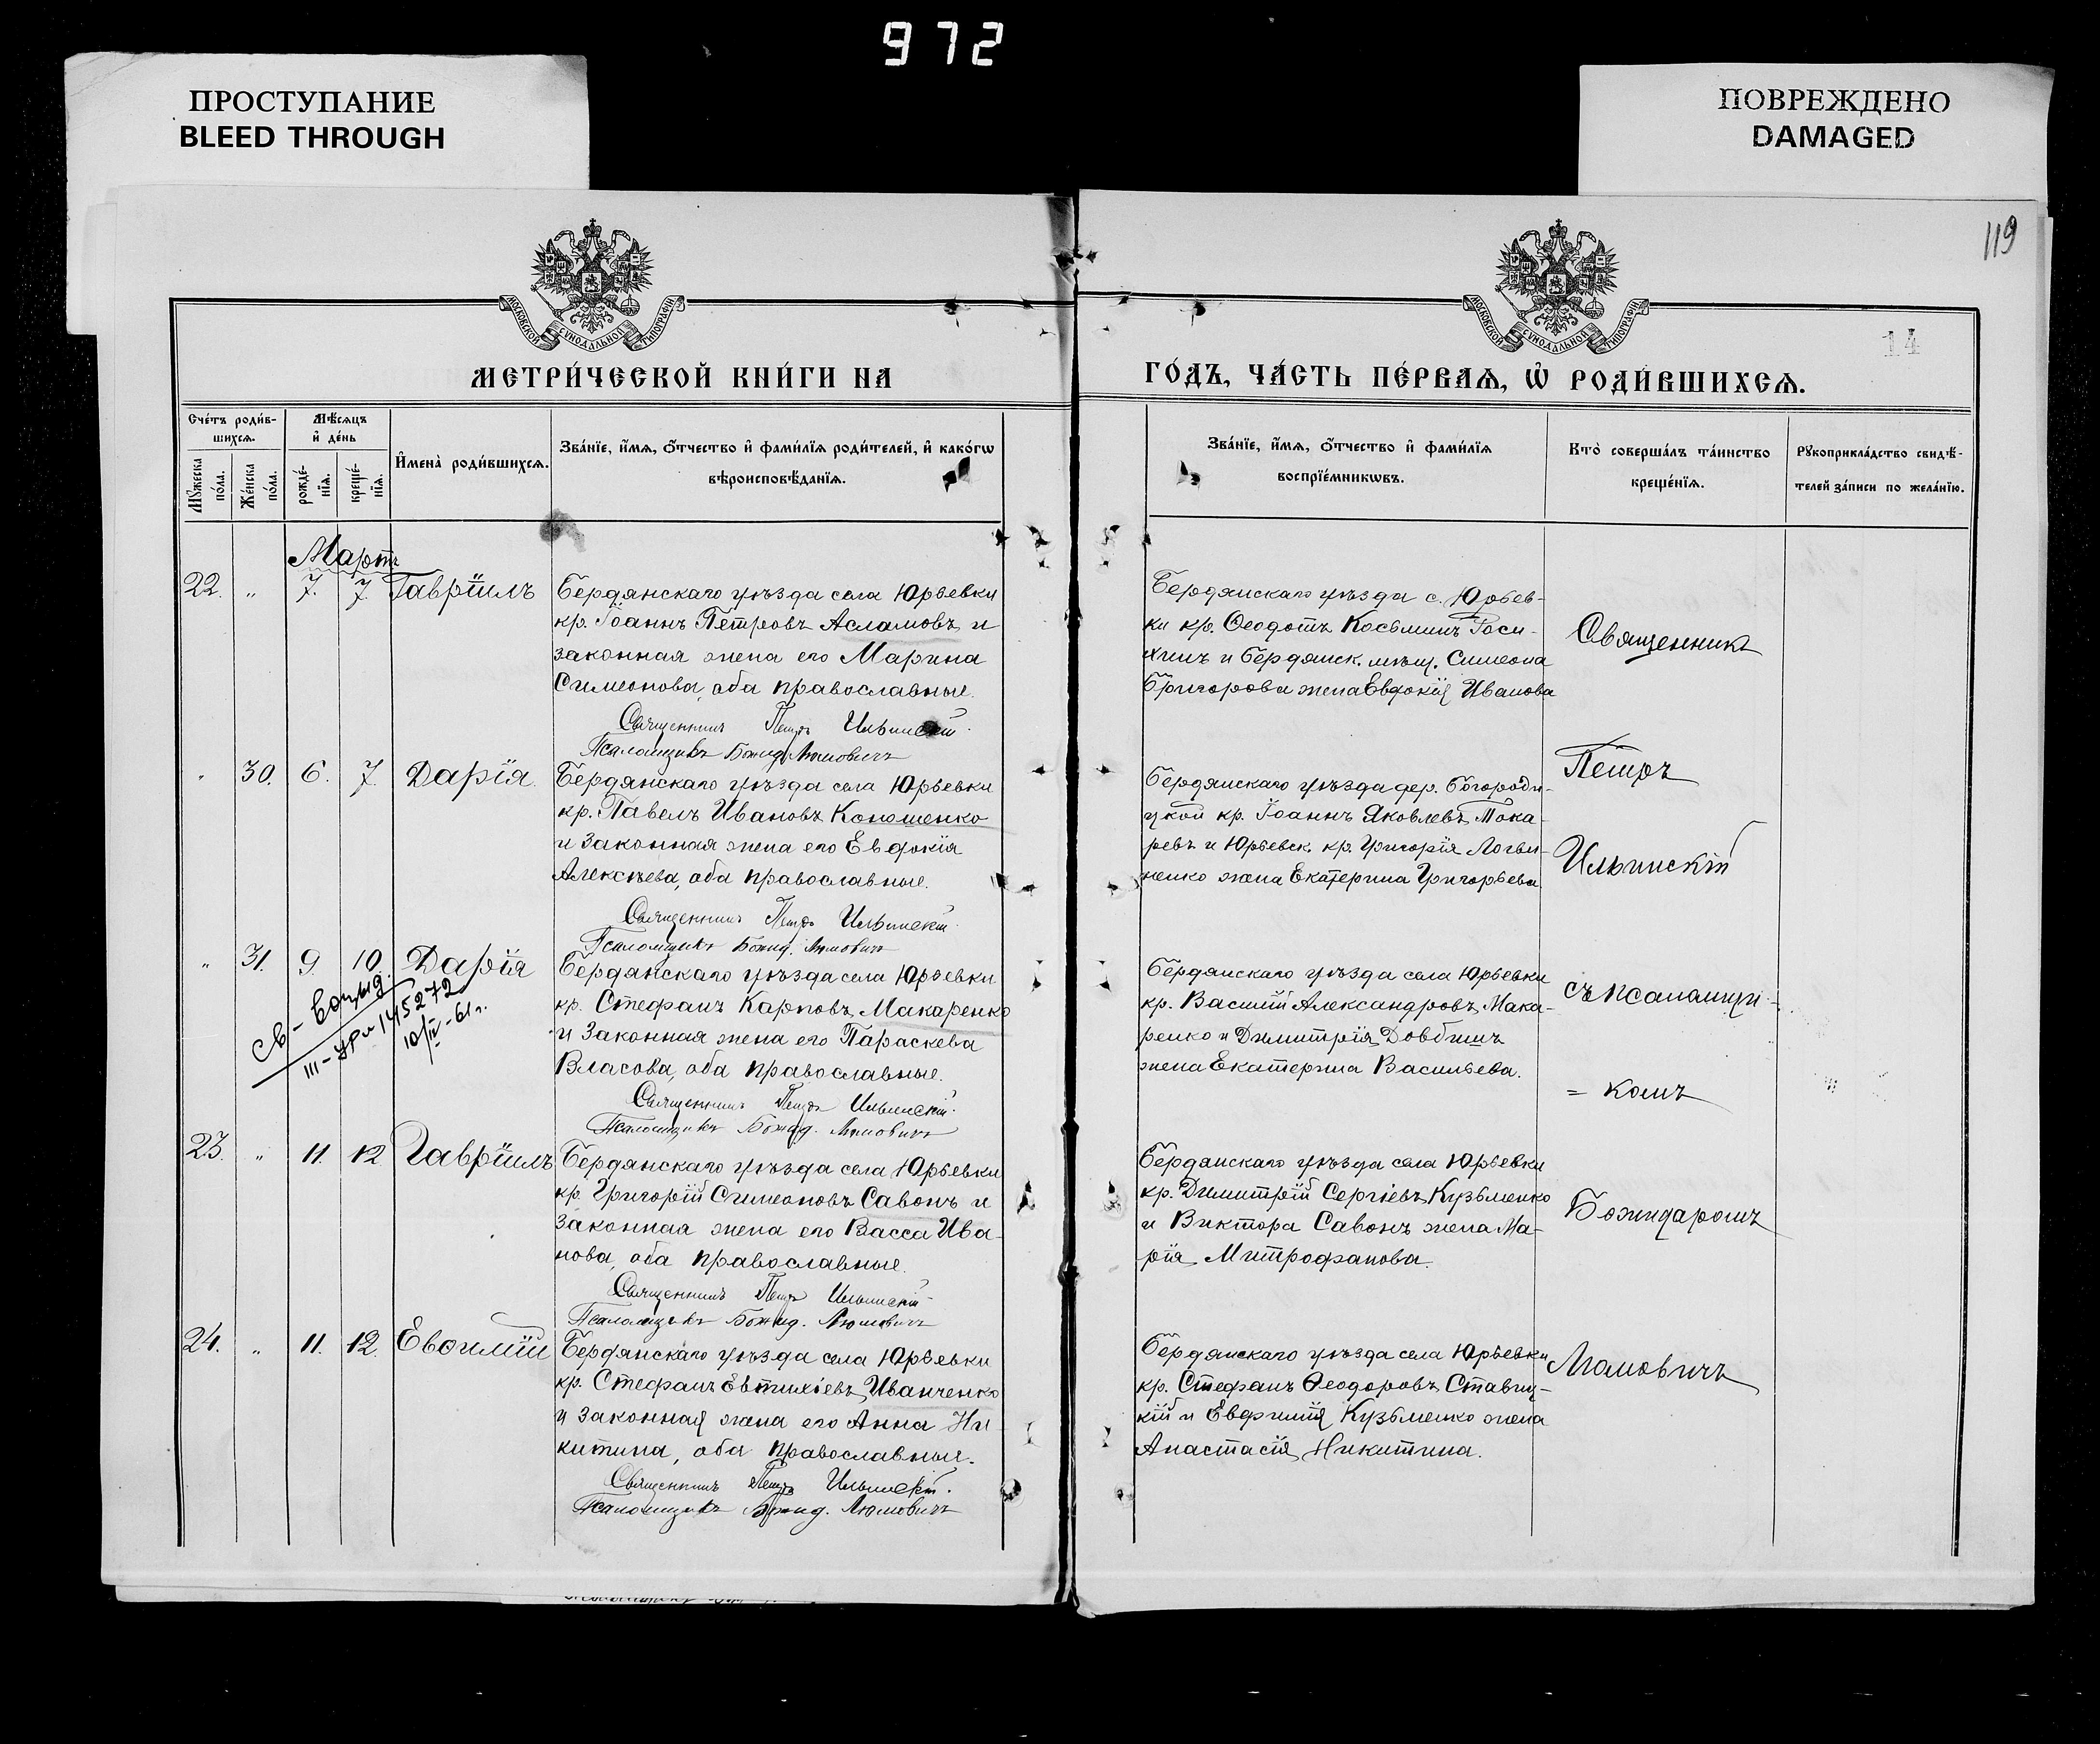 972
ПРОСТУПАНИЕ
BLEED THROUGH
ПОВРЕЖДЕНО
DAMAGED
119
14
МОСКОВСКОЙ СѴНОДАЛЬНОЙ ТИПОГРАФІИ
МОСКОВСКОЙ СѴНОДАЛЬНОЙ ТИПОГРАФІИ
МЕТРИ́ЧЕСКОЙ КНИ́ГИ НА
ГО́ДЪ, ЧА́СТЬ ПЕ́РВАѦ, Ѡ҆ РОДИ́ВШИХСѦ.
Сче́тъ роди́в-
шихсѧ.
Мꙋ́жеска
по́ла.
Же́нска
по́ла.
Мѣ́сѧцъ
и҆ де́нь
рожде́-
нїѧ.
креще́-
нїѧ.
И҆мена̀ роди́вшихсѧ.
Зва́нїе, и҆́мѧ, ѻ҆́тчество и҆ фами́лїѧ роди́телей, и҆ како́гѡ
вѣроисповѣ́данїѧ.
Зва́нїе, и҆́мѧ, ѻ҆́тчество и҆ фами́лїѧ
воспрїе́мникѡвъ.
Кто̀ соверша́лъ та́инство
креще́нїѧ.
Рꙋкоприкла́дство свидѣ́-
телей за́писи по жела́нїю.
Мартъ
22. " 7. 7. Гавріилъ
Бердянскаго уѣзда села Юрьевки
кр. Іоаннъ Петровъ Асламовъ и
законная жена его Марина
Симеонова, оба православные.
Священникъ Петръ Ильинскій.
Псаломщикъ Божид. Люмовичъ
Бердянскаго уѣзда с. Юрьев-
ки кр. Ѳеодотъ Косьминъ
и Бердянск. мѣщ. Симеона
Григорова жена Евдокія Иванова
" 30. 6. 7. Дарія
Бердянскаго уѣзда села Юрьевки
кр. Павелъ Ивановъ Кономенко
и законная жена его Евдокія
Алексѣева, оба православные.
Священникъ Петръ Ильинскій.
Псаломщикъ Божид. Люмовичъ
Бердянскаго уѣзда дер. Богороди-
цкой кр. Іоаннъ Яковлевъ Тока-
ревъ и Юрьевск. кр. Григорія Логви-
ненко жена Екатерина Григорьева
" 31. 9. 10. Дарія
Бердянскаго уѣзда села Юрьевки
кр. Стефанъ Карповъ Макаренко
и законная жена его Параскева
Власова, оба православные.
Священникъ Петръ Ильинскій.
Псаломщикъ Божид. Люмовичъ
III-УР № 145272
10/IV-61г.
Бердянскаго уѣзда села Юрьевки
кр. Василій Александровъ Мака-
ренко и Димитрія Довбышъ
жена Екатерина Васильева.
23. " 11. 12. Гавріилъ
Бердянскаго уѣзда села Юрьевки
кр. Григорій Симеоновъ Савонъ и
законная жена его Васса Ива-
нова, оба православные.
Священникъ Петръ Ильинскій
Псаломщикъ Божид. Люмовичъ
Бердянскаго уѣзда села Юрьевки
кр. Димитрій Сергіевъ Кузьменко
и Виктора Савонъ жена Ма-
рія Митрофанова.
24. " 11. 12. Евѳимій
Бердянскаго уѣзда села Юрьевки
кр. Стефанъ Евтихіевъ Иванченко
и законная жена его Анна Ни-
китина, оба православныя.
Священникъ Петръ Ильинскій.
Псаломщикъ Божид. Люмовичъ
Бердянскаго уѣзда села Юрьевки
кр. Стефанъ Ѳеодоровъ Ставиц-
кій и Евфимія Кузьменко жена
Анастасія Никитина.
Священникъ
Петръ
Ильинскій
съ псаломщи-
= комъ
Божидаромъ
Люмовичъ